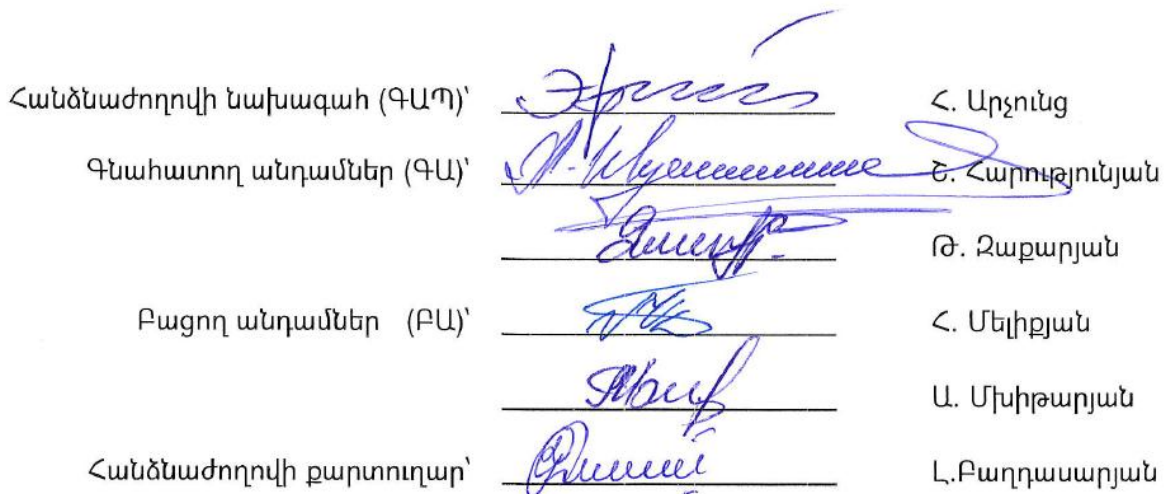 Հանձնաժողովի նախագահ (ԳԱՊ)՝ Հ. Արչունց
Գնահատող անդամներ (ԳԱ)՝ Շ. Հարությունյան
Թ. Զաքարյան
Բացող անդամներ (ԲԱ)՝ Հ. Մելիքյան
Ա. Մխիթարյան
Հանձնաժողովի քարտուղար՝ Լ.Բաղդասարյան